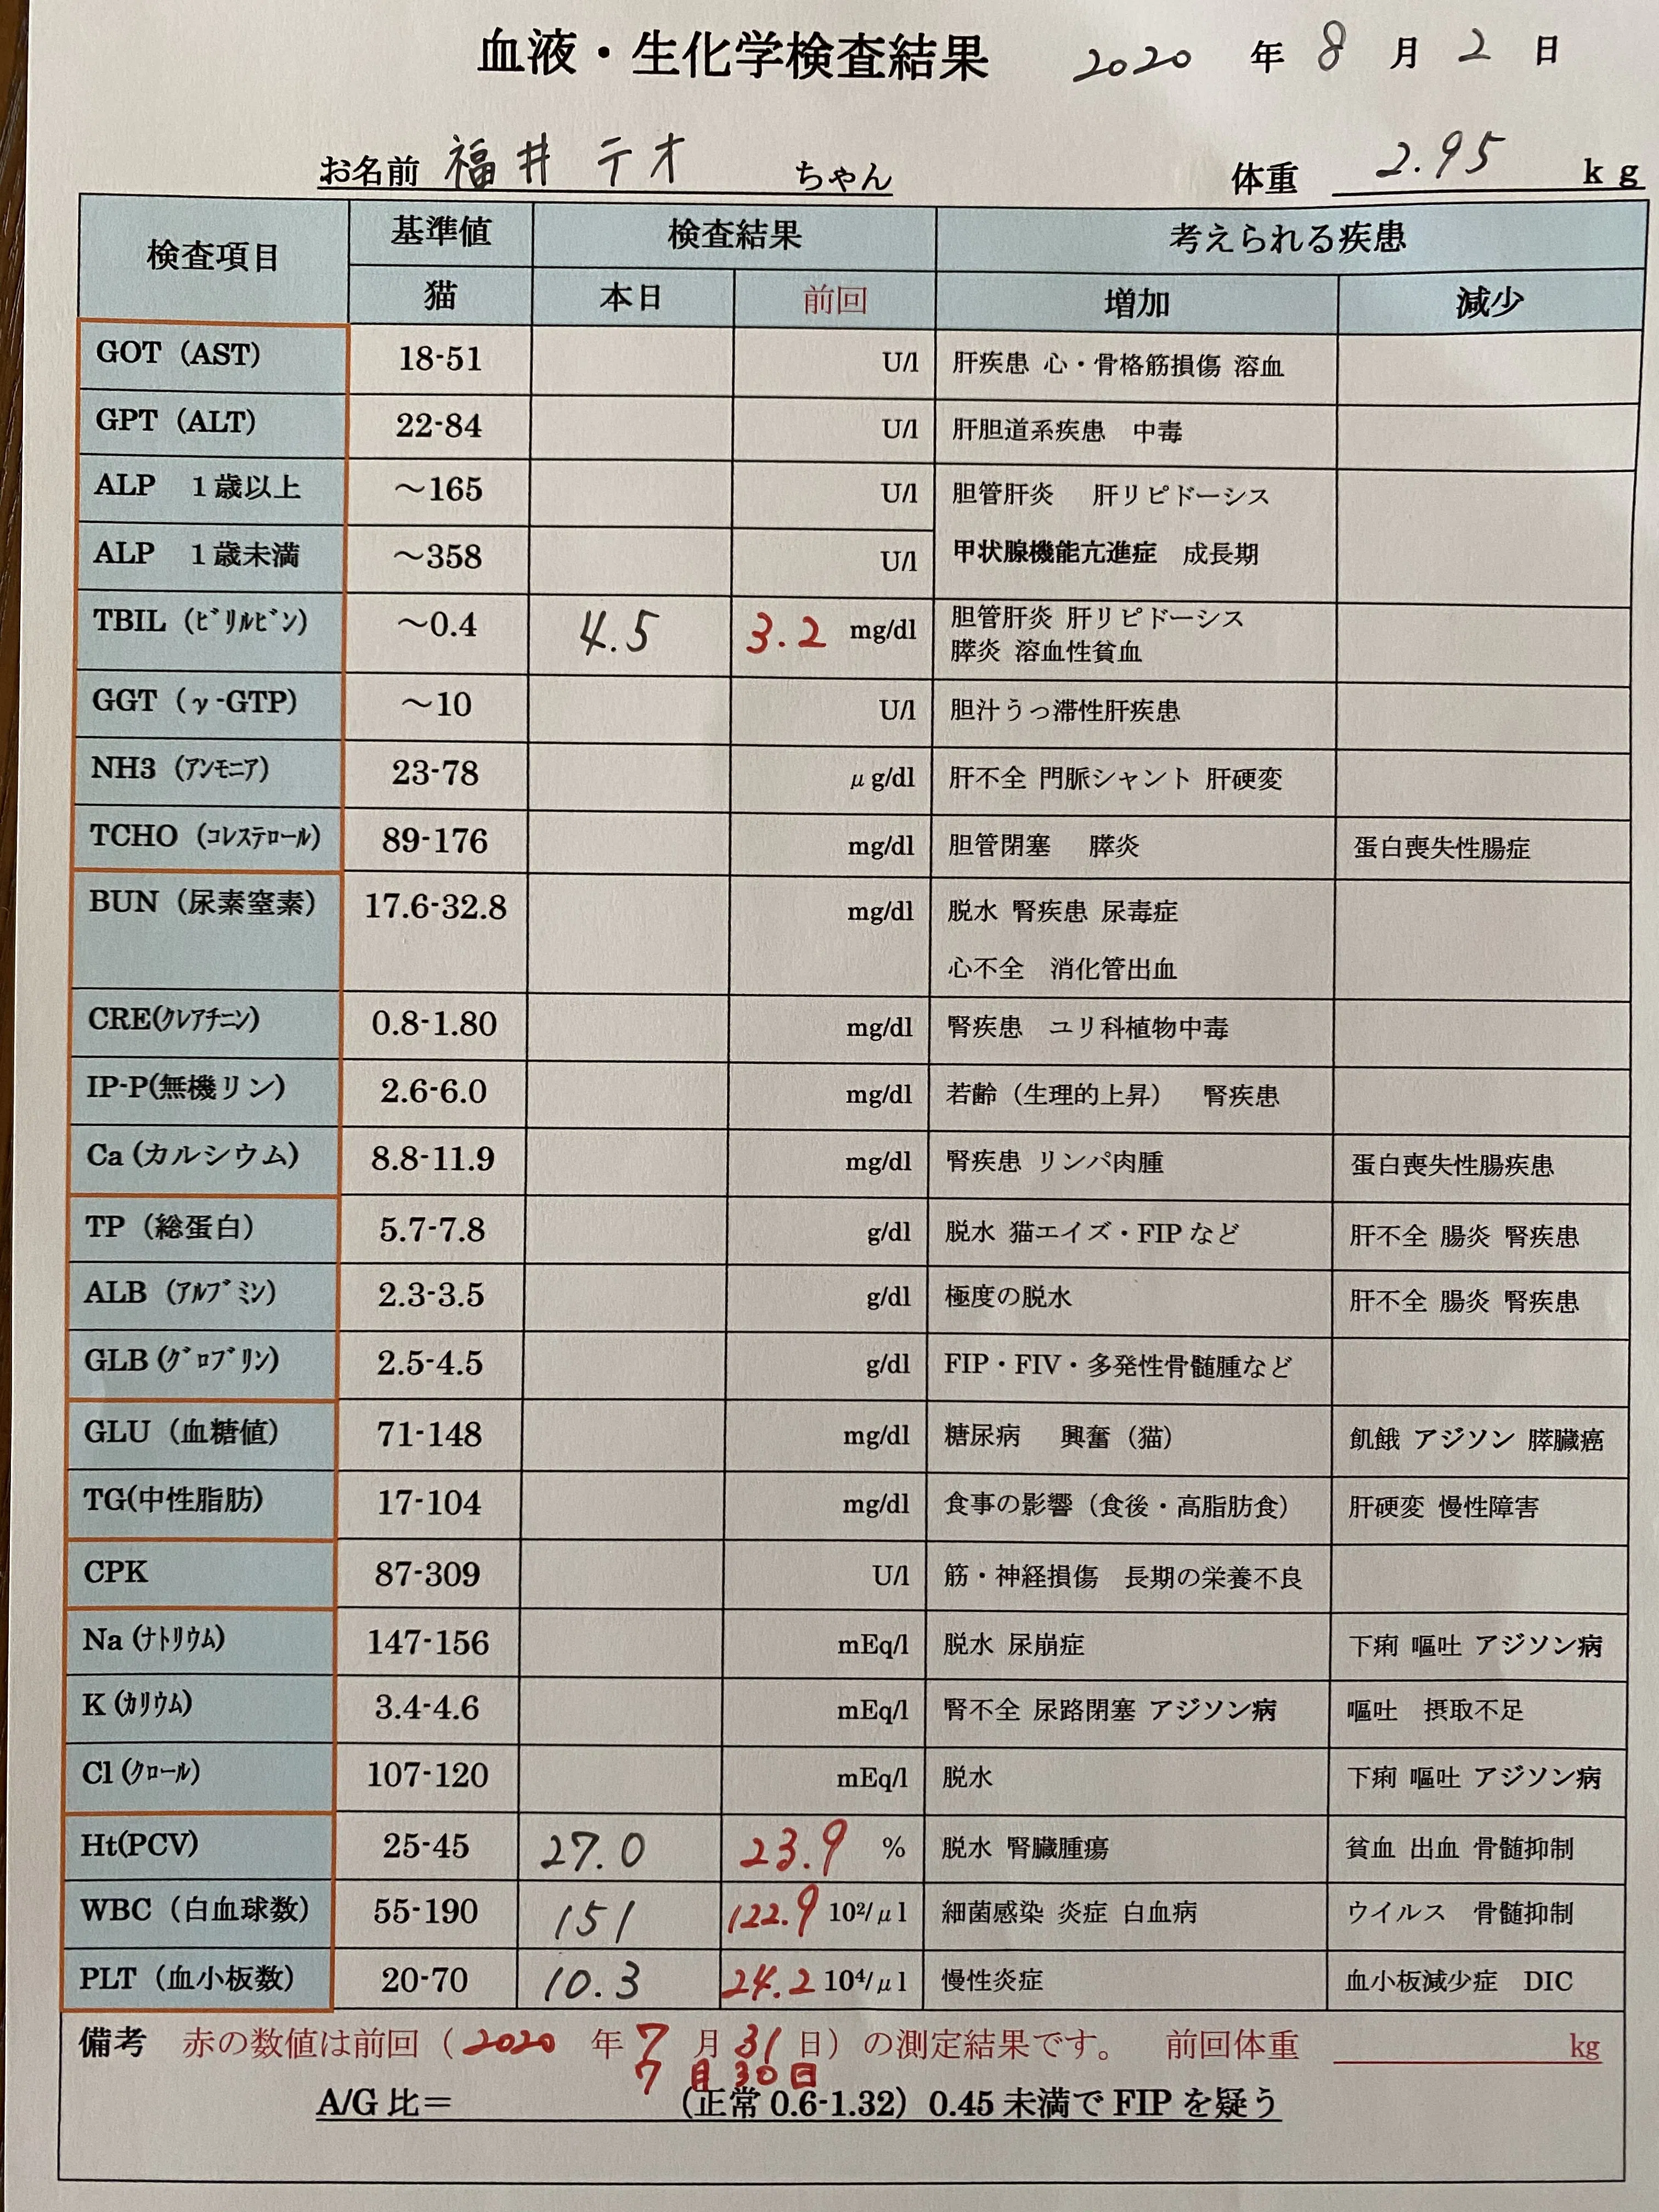 血液・生化学検査結果 2020 年 8 月 2 日
お名前 福井 テオ ちゃん 体重 2.95 kg
検査項目 基準値 検査結果 考えられる疾患
猫 本日 前回 増加 減少
GOT（AST） 18-51 U/l 肝疾患 心・骨格筋損傷 溶血
GPT（ALT） 22-84 U/l 肝胆道系疾患 中毒
ALP 1歳以上 ～165 U/l 胆管肝炎 肝リピドーシス
ALP 1歳未満 ～358 U/l 甲状腺機能亢進症 成長期
TBIL（ﾋﾞﾘﾙﾋﾞﾝ） ～0.4 4.5 3.2 mg/dl 胆管肝炎 肝リピドーシス
膵炎 溶血性貧血
GGT（γ-GTP） ～10 U/l 胆汁うっ滞性肝疾患
NH3（ｱﾝﾓﾆｱ） 23-78 μg/dl 肝不全 門脈シャント 肝硬変
TCHO（ｺﾚｽﾃﾛｰﾙ） 89-176 mg/dl 胆管閉塞 膵炎 蛋白喪失性腸症
BUN（尿素窒素） 17.6-32.8 mg/dl 脱水 腎疾患 尿毒症
心不全 消化管出血
CRE(ｸﾚｱﾁﾆﾝ) 0.8-1.80 mg/dl 腎疾患 ユリ科植物中毒
IP-P(無機リン) 2.6-6.0 mg/dl 若齢（生理的上昇） 腎疾患
Ca（カルシウム） 8.8-11.9 mg/dl 腎疾患 リンパ肉腫 蛋白喪失性腸疾患
TP（総蛋白） 5.7-7.8 g/dl 脱水 猫エイズ・FIPなど 肝不全 腸炎 腎疾患
ALB（ｱﾙﾌﾞﾐﾝ） 2.3-3.5 g/dl 極度の脱水 肝不全 腸炎 腎疾患
GLB（ｸﾞﾛﾌﾞﾘﾝ） 2.5-4.5 g/dl FIP・FIV・多発性骨髄腫など
GLU（血糖値） 71-148 mg/dl 糖尿病 興奮（猫） 飢餓 アジソン 膵臓癌
TG(中性脂肪) 17-104 mg/dl 食事の影響（食後・高脂肪食） 肝硬変 慢性障害
CPK 87-309 U/l 筋・神経損傷 長期の栄養不良
Na（ﾅﾄﾘｳﾑ） 147-156 mEq/l 脱水 尿崩症 下痢 嘔吐 アジソン病
K（ｶﾘｳﾑ） 3.4-4.6 mEq/l 腎不全 尿路閉塞 アジソン病 嘔吐 摂取不足
Cl（ｸﾛｰﾙ） 107-120 mEq/l 脱水 下痢 嘔吐 アジソン病
Ht(PCV) 25-45 27.0 23.9 % 脱水 腎臓腫瘍 貧血 出血 骨髄抑制
WBC（白血球数） 55-190 151 122.9 10²/μl 細菌感染 炎症 白血病 ウイルス 骨髄抑制
PLT（血小板数） 20-70 10.3 24.2 10⁴/μl 慢性炎症 血小板減少症 DIC
備考 赤の数値は前回（2020 年 7 月 31 日）の測定結果です。 前回体重 kg
7月30日
A/G 比＝ （正常 0.6-1.32）0.45 未満で FIP を疑う